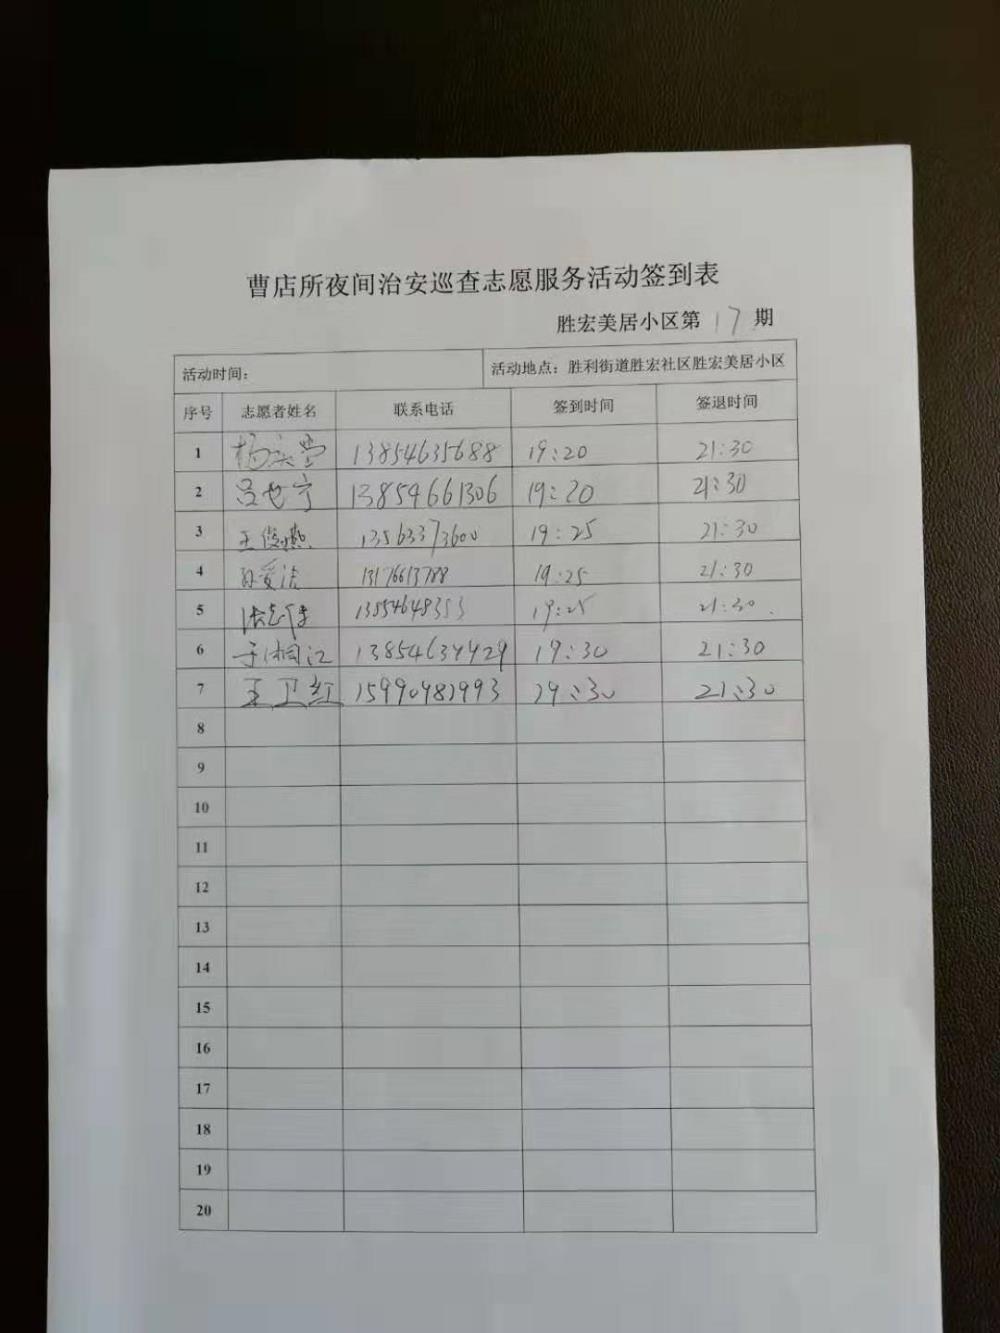 曹店所夜间治安巡查志愿服务活动签到表
胜宏美居小区第17期
活动时间： 活动地点：胜利街道胜宏社区胜宏美居小区
序号 志愿者姓名 联系电话 签到时间 签退时间
1 13854635688 19:20 21:30
2 吕世宁 13854661306 19:20 21:30
3 王俊燕 13563373600 19:25 21:30
4 孙爱洁 13176613788 19:25 21:30
5 19:25 21:30.
6 于湘江 13854634429 19:30 21:30
7 王卫红 21:30
8
9
10
11
12
13
14
15
16
17
18
19
20